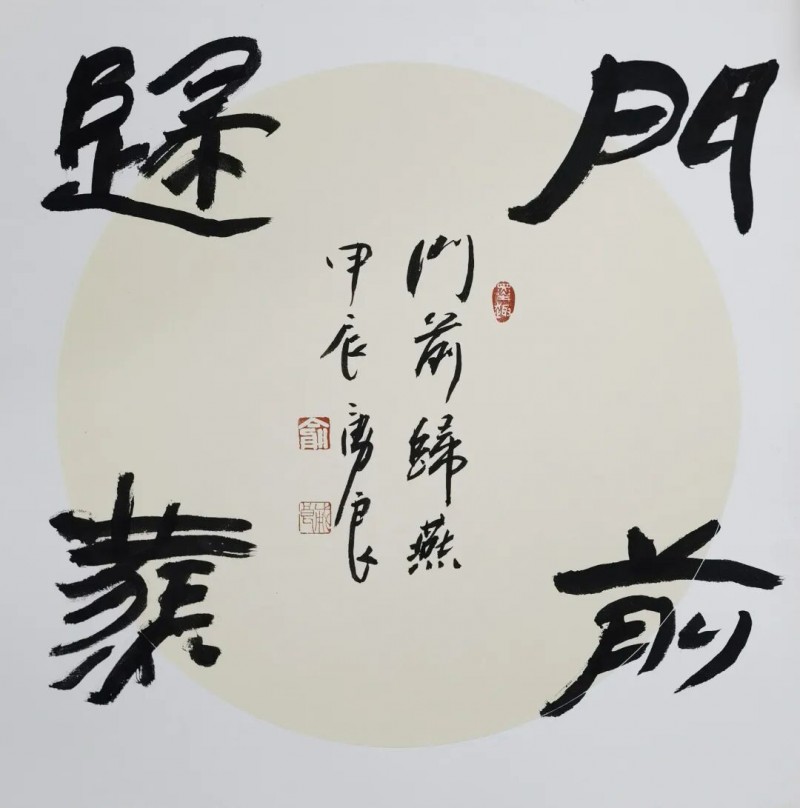 門前
歸燕
門前歸燕
甲辰勇良
俞